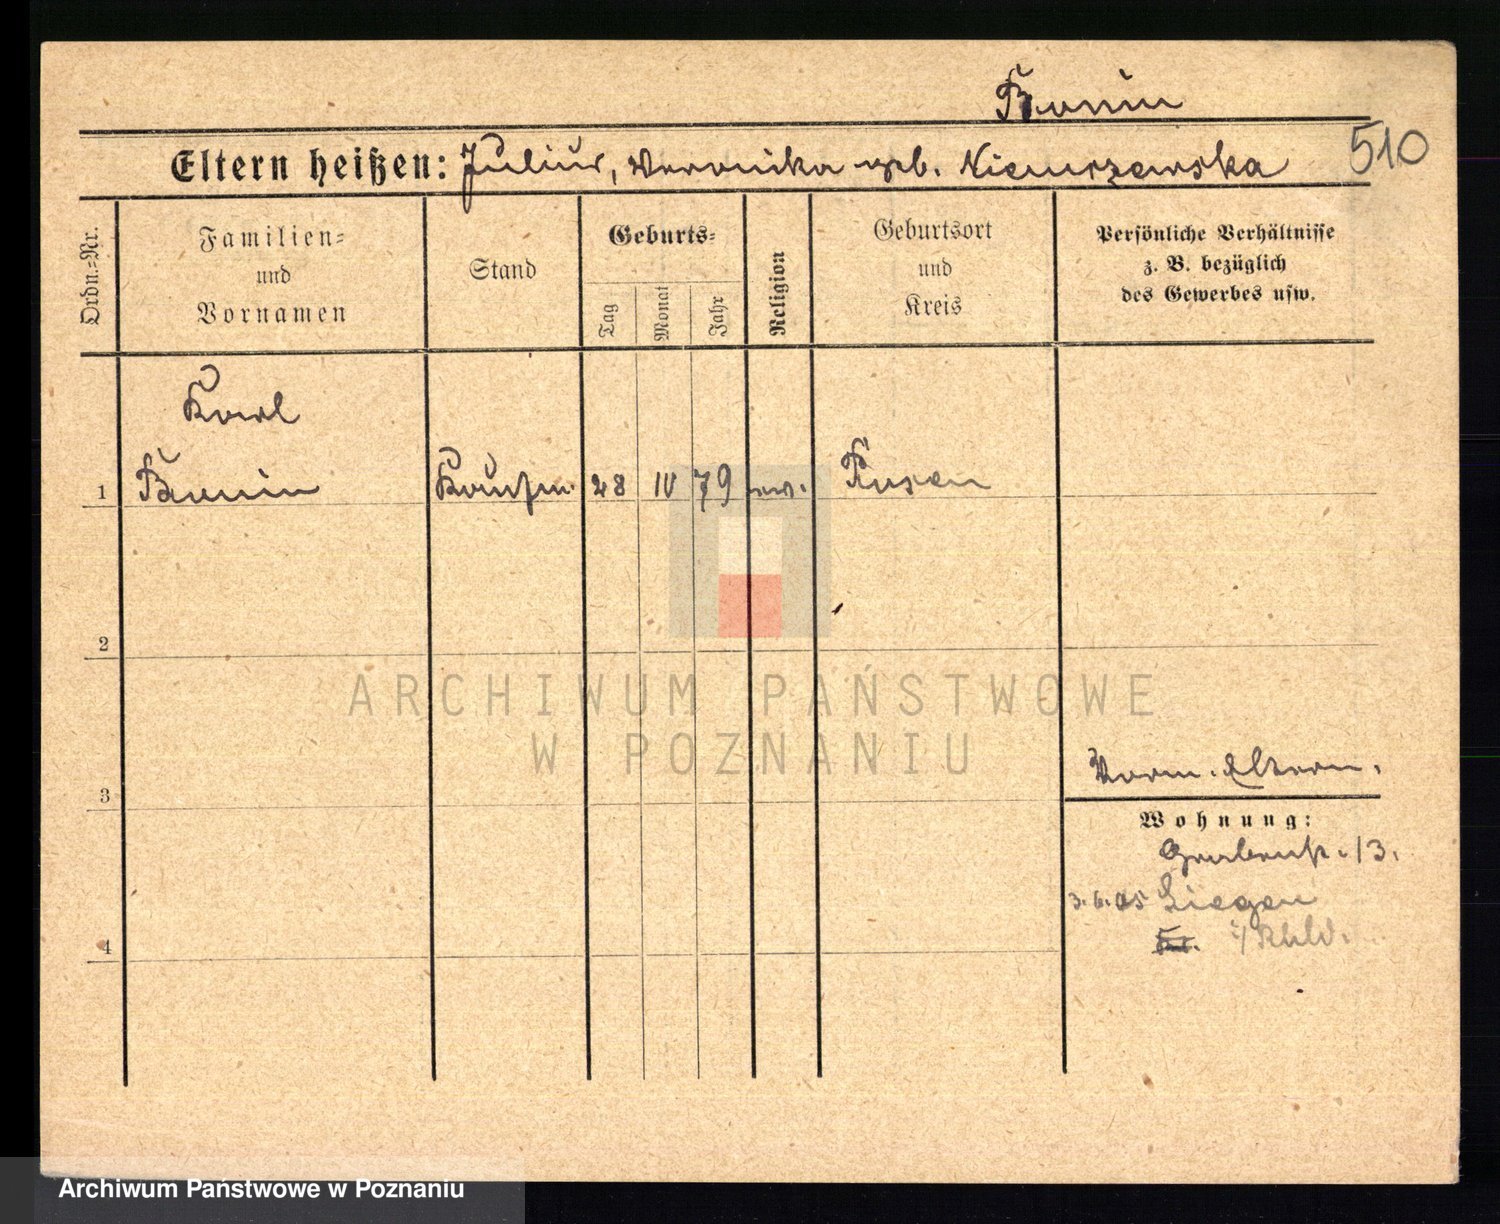 Bonin
Eltern heißen: Julius, Veronika geb. Niemrzewska
510
Ordn.=Nr.
Familien=
und
Vornamen
Stand
Geburts=
Tag
Monat
Jahr
Religion
Geburtsort
und
Kreis
Persönliche Verhältnisse
z. B. bezüglich
des Gewerbes usw.
Karl
1 Bonin Kaufm. 28 IV 79 ev. Posen
2
3
4
Vorm. Eltern.
Wohnung:
Grabenstr. 13.
3.6.05 Siegen
i/Rhld.
ARCHIWUM PAŃSTWOWE
W POZNANIU
Archiwum Państwowe w Poznaniu